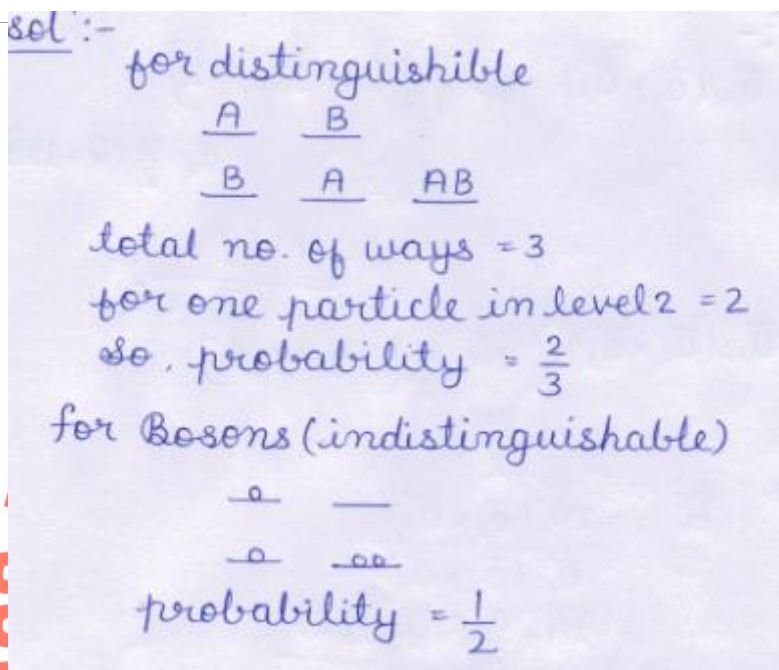 sol :-
for distinguishible
A B
B A AB
total no. of ways = 3
for one particle in level 2 = 2
so, probability = 2/3
for Bosons (indistinguishable)
o
o oo
probability = 1/2